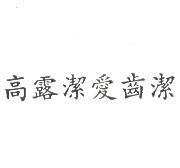 高露潔愛齒潔